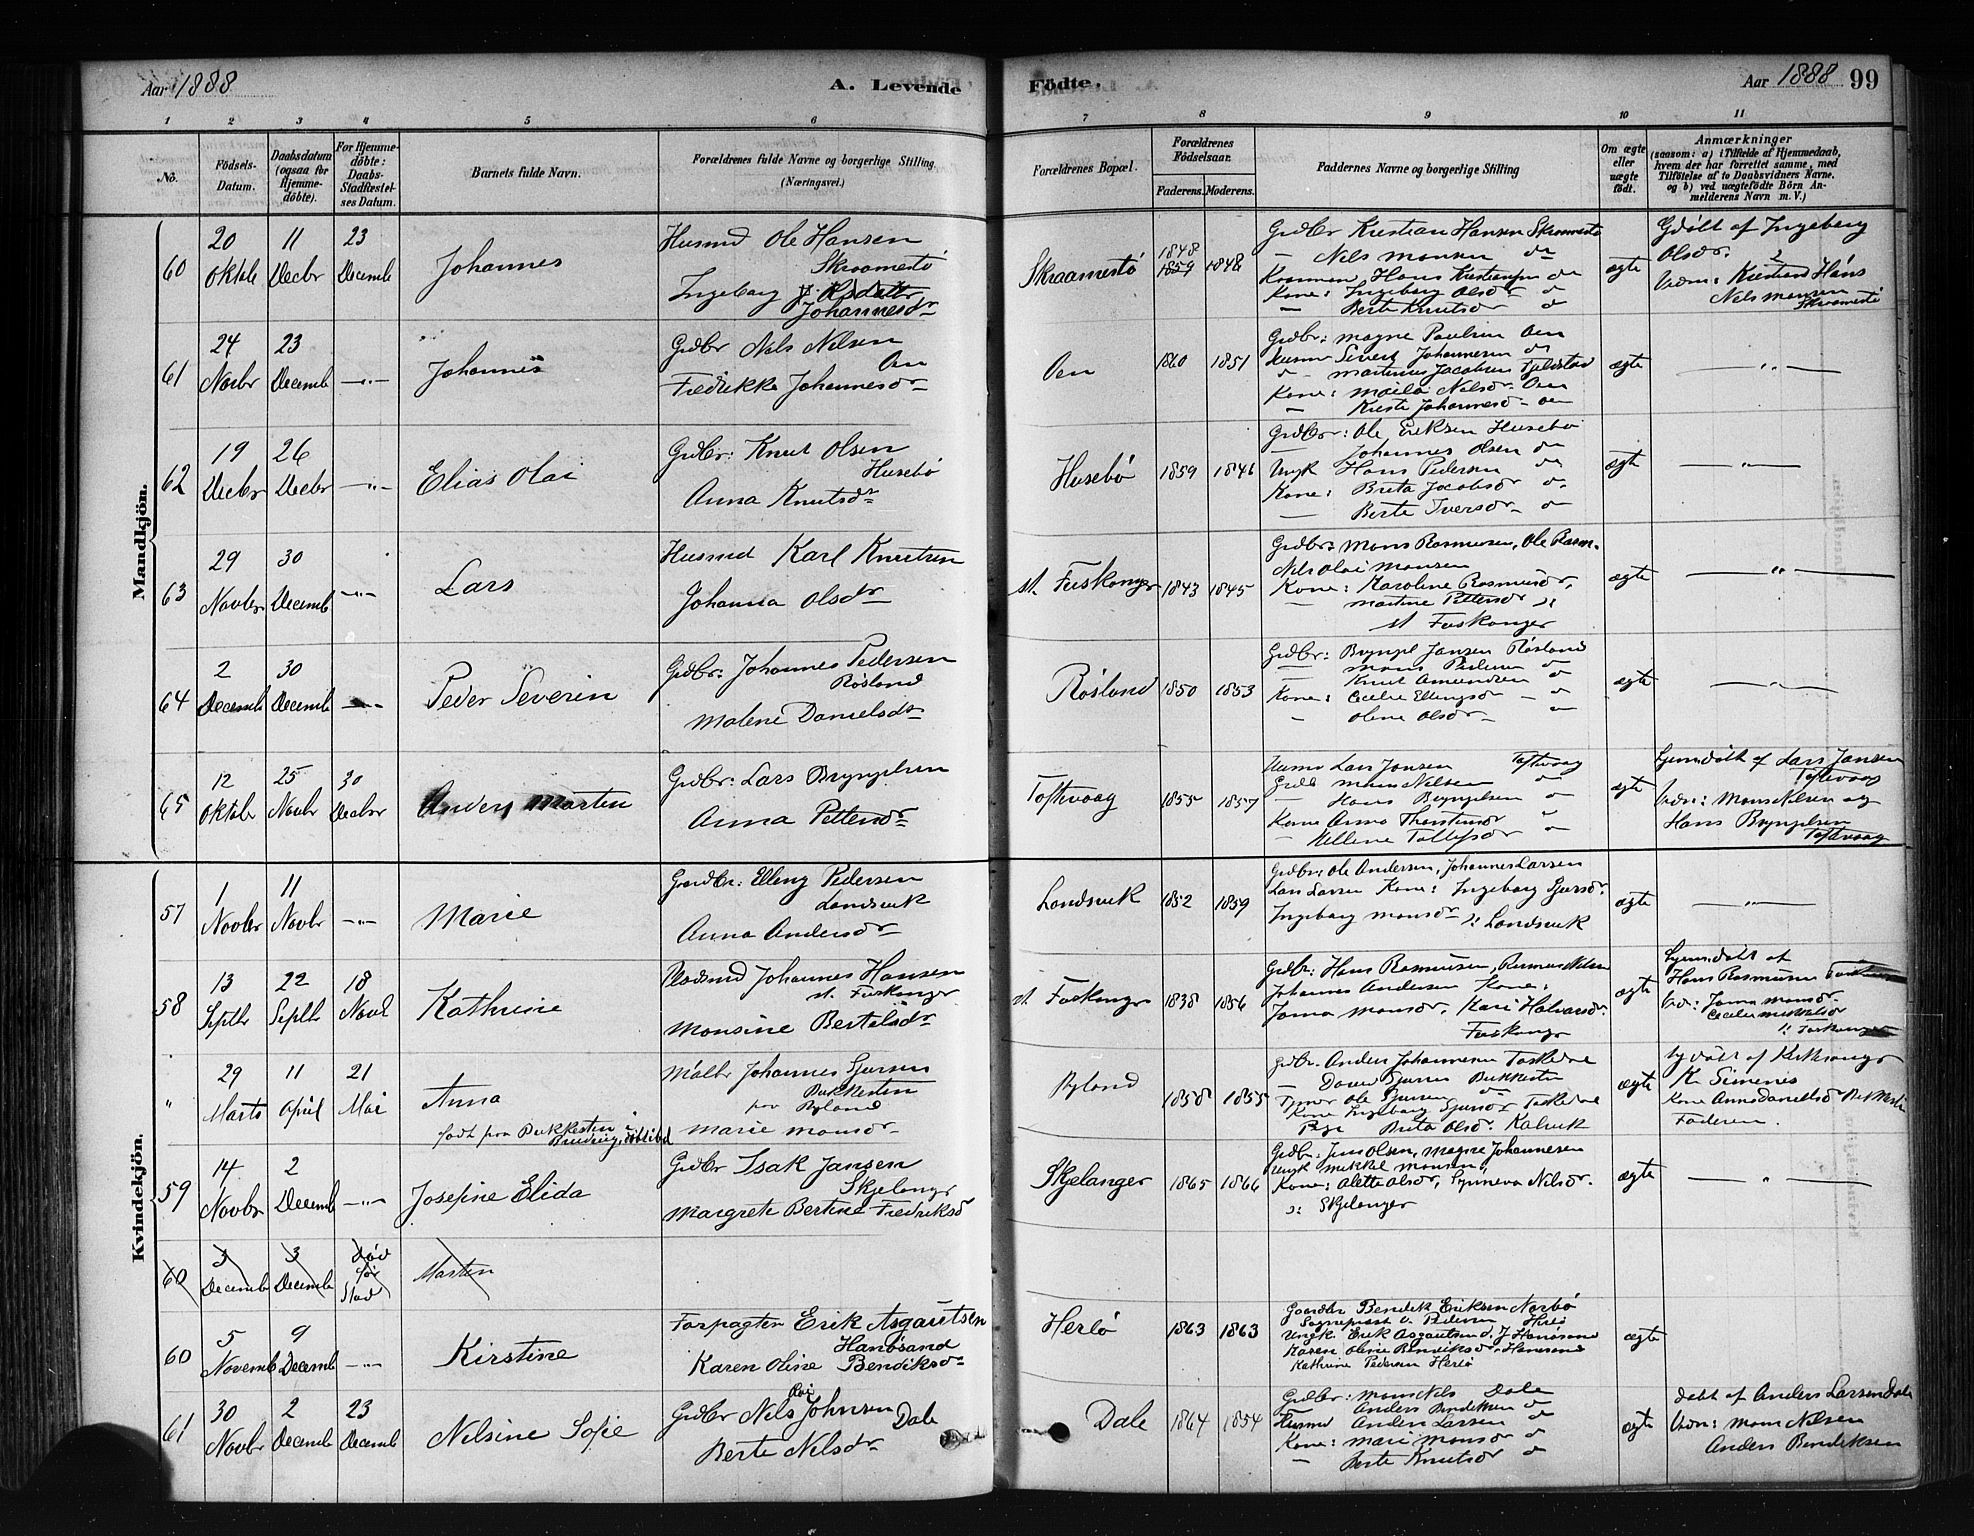 Aar 1888
A. Levende
Födte.
Aar 1888 99
1 2 3 4 5 6 7 8 9 10 11
No.
Födsels-
Datum.
Daabsdatum
(ogsaa for
Hjemme-
döbte).
For Hjemme-
döbte:
Daabs-
Stadfæstel-
ses Datum.
Barnets fulde Navn.
Forældrenes fulde Navne og borgerlige Stilling
(Næringsvei.)
Forældrenes Bopæl.
Forældrenes
Födselsaar.
Faderens. Moderens.
Faddernes Navne og borgerlige Stilling
Om ægte
eller
uægte
födt.
Anmærkninger
(saasom: a) i Tilfælde af Hjemmedaab,
hvem der har forrettet samme, med
Tilföielse af to Daabsvidners Navne,
og b) ved uægtefödte Börn An-
melderens Navn m. V.)
Mandkjön.
60
20
Oktob
11
Decbr
23
Decemb
Johannes
Husmd Ole Hansen
Skraamestö
Ingeborg
Johannesdr
Skraamestö
1848
1859 1848
Grdbr Kristian Hansen Skraamestö
— Nils Monsen do
Hans Kristiansen do
Kone: Ingeborg Olsdr do
— Berte Knutsdr do
ægte
Gdöbt af Ingeborg
Olsdr.
Vidn: Hans
Nels Monsen
Skraamestö
61
24
Novbr
23
Decemb
—"—
Johannes
Grdbr Nils Nilsen
Oen
Fredrikke Johannesdr
Oen
1860 1851
Grdbr: Magne Paulsen Oen
Husmd Sivert Johannesen do
do Martinus Jacobsen Fjeldstad
Kone: Maila Nilsdr Oen
— Kirsti Johannesd Oen
ægte
—"—
62
19
Decbr
26
Decbr
—"—
Elias Olai
Grdbr: Knut Olsen
Husebö
Anna Knutsdr
Husebö
1859 1846
Grdbr: Ole Eriksen Husebö
— Johannes Olsen do
Ungk Hans Pedersen do
Kone: Brita Jacobsdr do
— Berte Iversdr do
ægte
—"—
63
29
Novbr
30
Decemb
—"—
Lars
Husmd Karl Knutsen
Johanna Olsdr
st. Fuskanger
1843 1845
Grdbr: Mons Rasmusen, Ole Rasm.
Nils Olai Monsen
Kone: Karoline Rasmusdr,
— Martine Pettersdr
st Fuskanger
ægte
—"—
64
2
Decemb
30
Decemb
—"—
Peder Severin
Grdbr: Johannes Pedersen
Rösland
Malene Danielsdr
Rösland
1850 1853
Grdbr: Brynjel Jansen Rösland
— Mons Pedersen do
— Knut Amundsen do
Kone: Cecilie Ellingsdr do
— Oline Olsdr do
ægte
—"—
65
12
Oktob
25
Novbr
30
Decbr
Anders Martin
Grdbr: Lars Brynjelsen
Anna Pettersdr
Toftevaag
1855 1857
Husmd Lars Jansen Toftevaag
Grdbr Mons Nilsen do
— Hans Brynjelsen do
Kone Anna Thorstensdr
— Hellene Tollefsdr do
ægte
Hjemdöbt af Lars Jansen
Toftevaag
Vidn: Mons Nilsen og
Hans Brynjelsen
Toftevaag
Kvindekjön.
57
1
Novbr
11
Novbr
—"—
Marie
Gaardbr: Elling Pedersen
Landsvik
Anna Andersdr
Landsvik
1852 1859
Grdbr: Ole Andersen, Johannes Larsen
Lars Larsen Kone: Ingeborg Sjursdr.
Ingeborg Monsdr Landsvik
ægte
—"—
58
13
Septbr
22
Septbr
18
Novb
Kathrine
Johannes Hansen
st. Fuskanger
Monsine Bertelsdr
st. Foskanger
1838 1856
Grdbr: Hans Rasmusen, Rasmus Nilsen
Johannes Andersen Kone:
Joma Monsdr, Kari Halvardsdr.
Fuskanger
ægte
Hjemdöbt af
Hans Rasmusen
Vid: Joma Monsdr.
Cecilie Mikkelsdr
Foskanger
"
29
Marts
11
April
21
Mai
Anna
födt paa Bukkesten
Johannes Sjursen
Bukkesten
paa Byland
Marie Monsdr
Byland
1858 1855
Grdbr. Anders Johannesen Toskedal
— Sjursen Bukkesten
Ole Sjursen do
Kone Ingeborg Sjursdr Toskedal
Pige Brita Olsdr. Kalsvik
ægte
Hjdöbt af Kirksanger
K. Simenes
Kone Anna Danielsdr
Faderen.
59
14
Novbr
2
Decemb
—"—
Josefine Elida
Grdbr Isak Jansen
Skjelanger
Margrete Bertine Fredriksd
Skjelanger
1865 1866
Grdbr: Jens Olsen, Magne Johannesen
Ungk Mikkel Monsen,
Kone: Alette Olsdr, Synneva Nilsdr.
Skjelanger
ægte
—"—
60
3
Decemb
3
Decemb
Död
för
Stad
Marten
60
5
Novemb
9
Decemb
—"—
Kirstine
Forpagter Erik Asgautsen
Hanøsand
Karen Oline Bendiksdr
Herlö
1863 1863
Gaardbr Bendik Eriksen Norbö
Sogneprest O. Pedersen Herlö
Ungk Erik Asgautsen d. J Hanösand
Karen Oline Bendiksdr Hanösand
Kathrine Pedersen Herlö
ægte
61
30
Novbr
2
Decemb
23
Decemb
Nelsine Sofie
Grdbr Nels Olai Johnsen Dale
Berte Nelsdr
Dale
1864 1854
Grdbr: Mons Nils Dale
— Anders Bendiksen do
Husmd Anders Larsen do
Kone: Mari Monsdr do
— Berte Knutsdr do
ægte
Döbt af Anders Larsen Dale
Vidn: Mons Nilsen
Anders Bendiksen